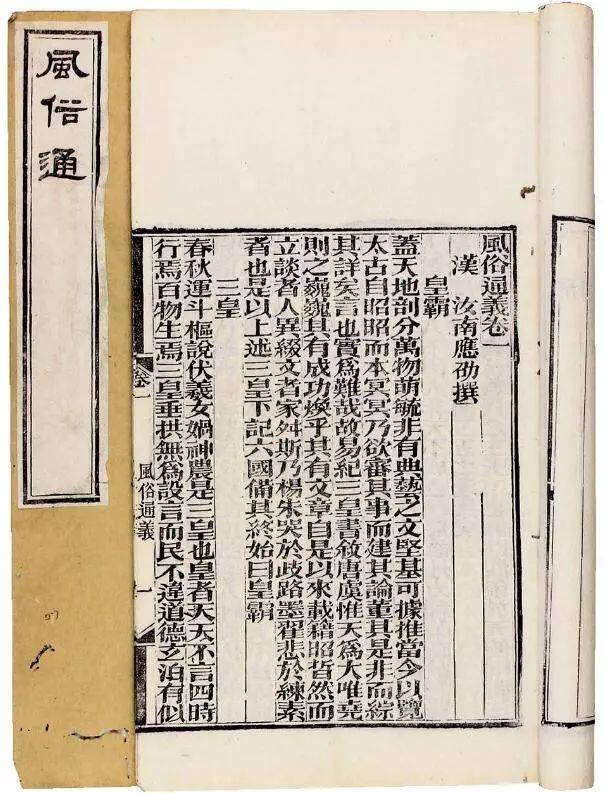 風俗通義卷一
漢 汝南應劭撰
皇霸
蓋天地剖分萬物萌毓非有典藝之文堅基可據推當今以覽
太古自昭昭而本冥冥乃欲審其事而建其論董其是非而綜
其詳矣言也實爲難哉故易紀三皇書敘唐虞惟天爲大唯堯
則之巍巍其有成功煥乎其有文章自是以來載籍昭晳然而
立談者人異綴文者家舛斯乃楊朱哭於歧路墨翟悲於練素
者也是以上述三皇下記六國備其終始曰皇霸
三皇
春秋運斗樞說伏羲女媧神農是三皇也皇者天天不言四時
行焉百物生焉三皇垂拱無爲設言而民不違道德玄泊有似
卷一 風俗通義 一
風俗通